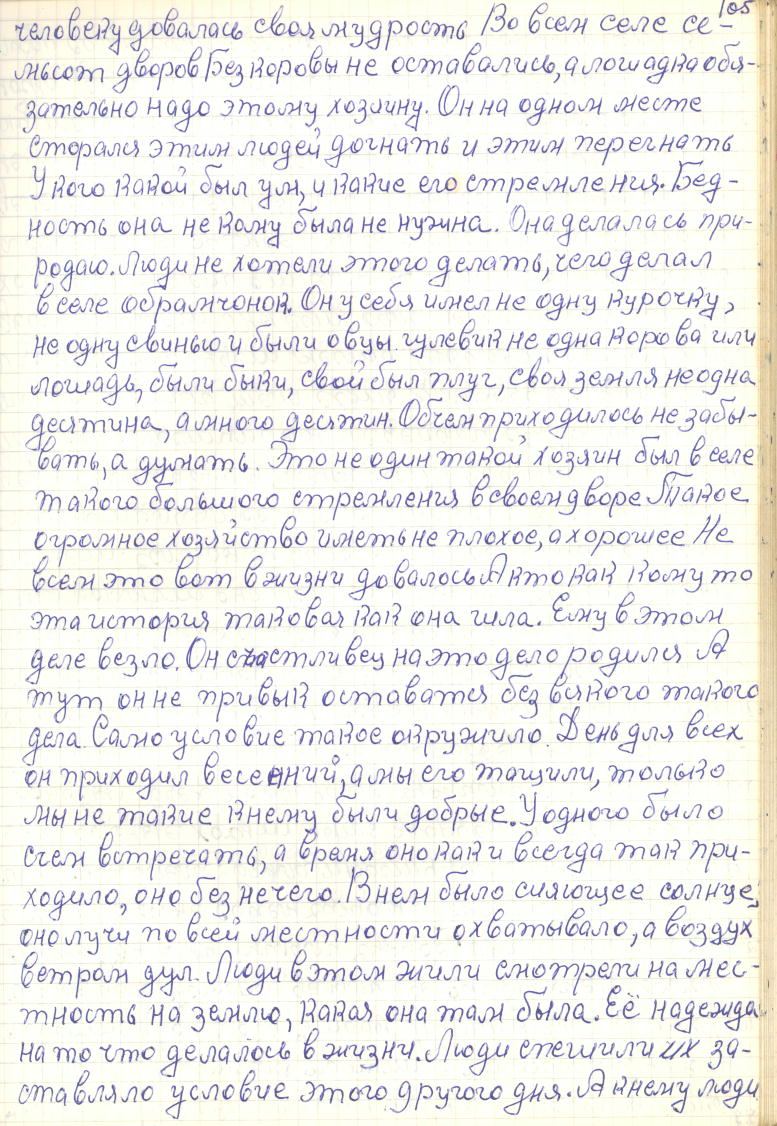 105
человеку довалась своя мудрость Во всем селе се-
мьсот дворов Без коровы не оставались, а лошадка обя-
зательно надо этому хозяину. Он на одном месте
сторался этим людей догнать и этим перегнать
У кого какой был ум, и какие его стремления. Бед-
ность она не кому была не нужна. Она делалась при-
родаю. Люди не хотели этого делать, чего делал
в селе обрамчонок. Он у себя имел не одну курочку,
не одну свинью и были овцы. гулевик не одна корова или
лошадь, были быки, свой был плуг, своя земля не одна
десятина, а много десятин. Обчем приходилось не забы-
вать, а думать. Это не один такой хозяин был в селе
такого большого стремления в своем дворе Такое
огромное хозяйство иметь не плохое, а хорошее Не
всем это вот в жизни довалось А кто как кому то
эта история таковая как она шла. Ему в этом
деле везло. Он счастливец на это дело родился А
тут он не привык оставатся без всякого такого
дела. Само условие такое окружило. День для всех
он приходил весенний, а мы его тащили, только
мы не такие к нему были добрые. У одного было
с чем встречать, а время оно как и всегда так при-
ходило, оно без нечего. В нем было сияющее солнце,
оно лучи по всей местности охватывало, а воздух
ветром дул. Люди в этом жили смотрели на мес-
тность на землю, какая она там была. Её надежда
на то что делалось в жизни. Люди спешили их за-
ставляло условие этого другого дня. А к нему люди